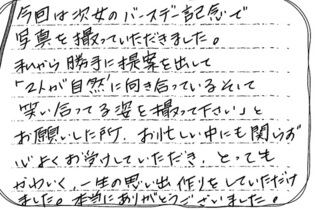 今回は次女のバースデー記念で
写真を撮っていただきました。
私から勝手に提案を出して
「2人が自然に向き合っているそして
笑い合ってる姿を撮って下さい」と
お願いした所、お忙しい中にも関らず
心よくお受けしていただき、とっても
かわいく、一生の思い出作りをしていただけ
ました。本当にありがとうございました。